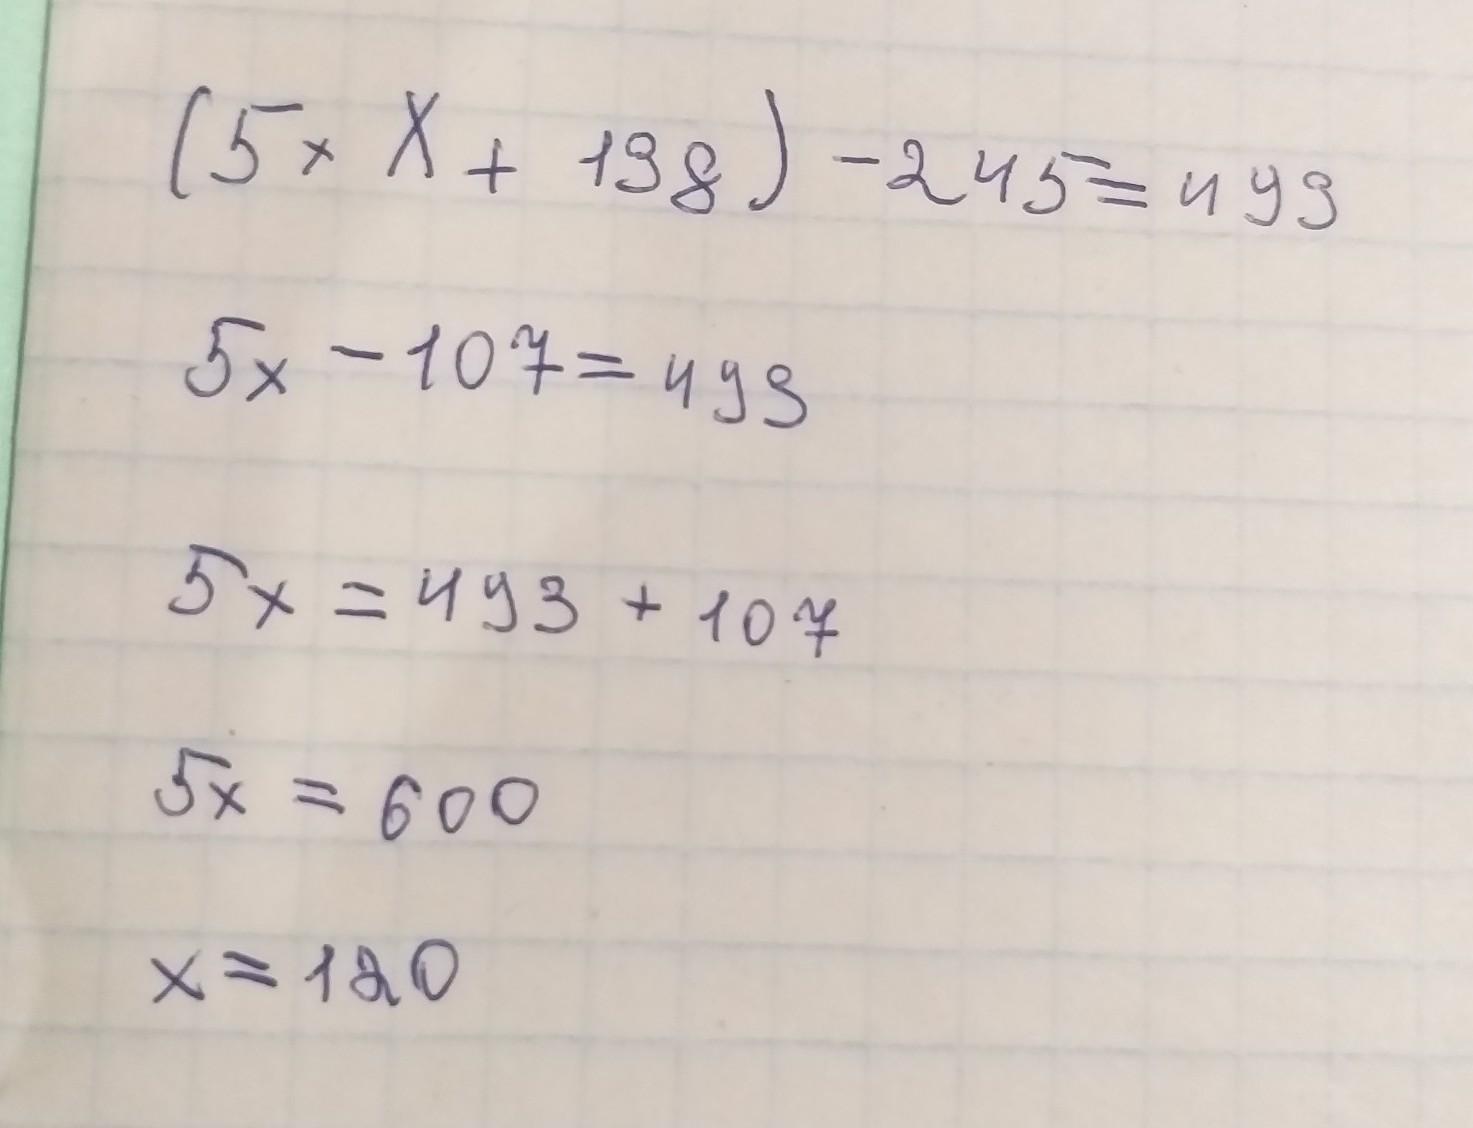 (5 × X + 138) - 245 = 493
5x - 107 = 493
5x = 493 + 107
5x = 600
x = 120